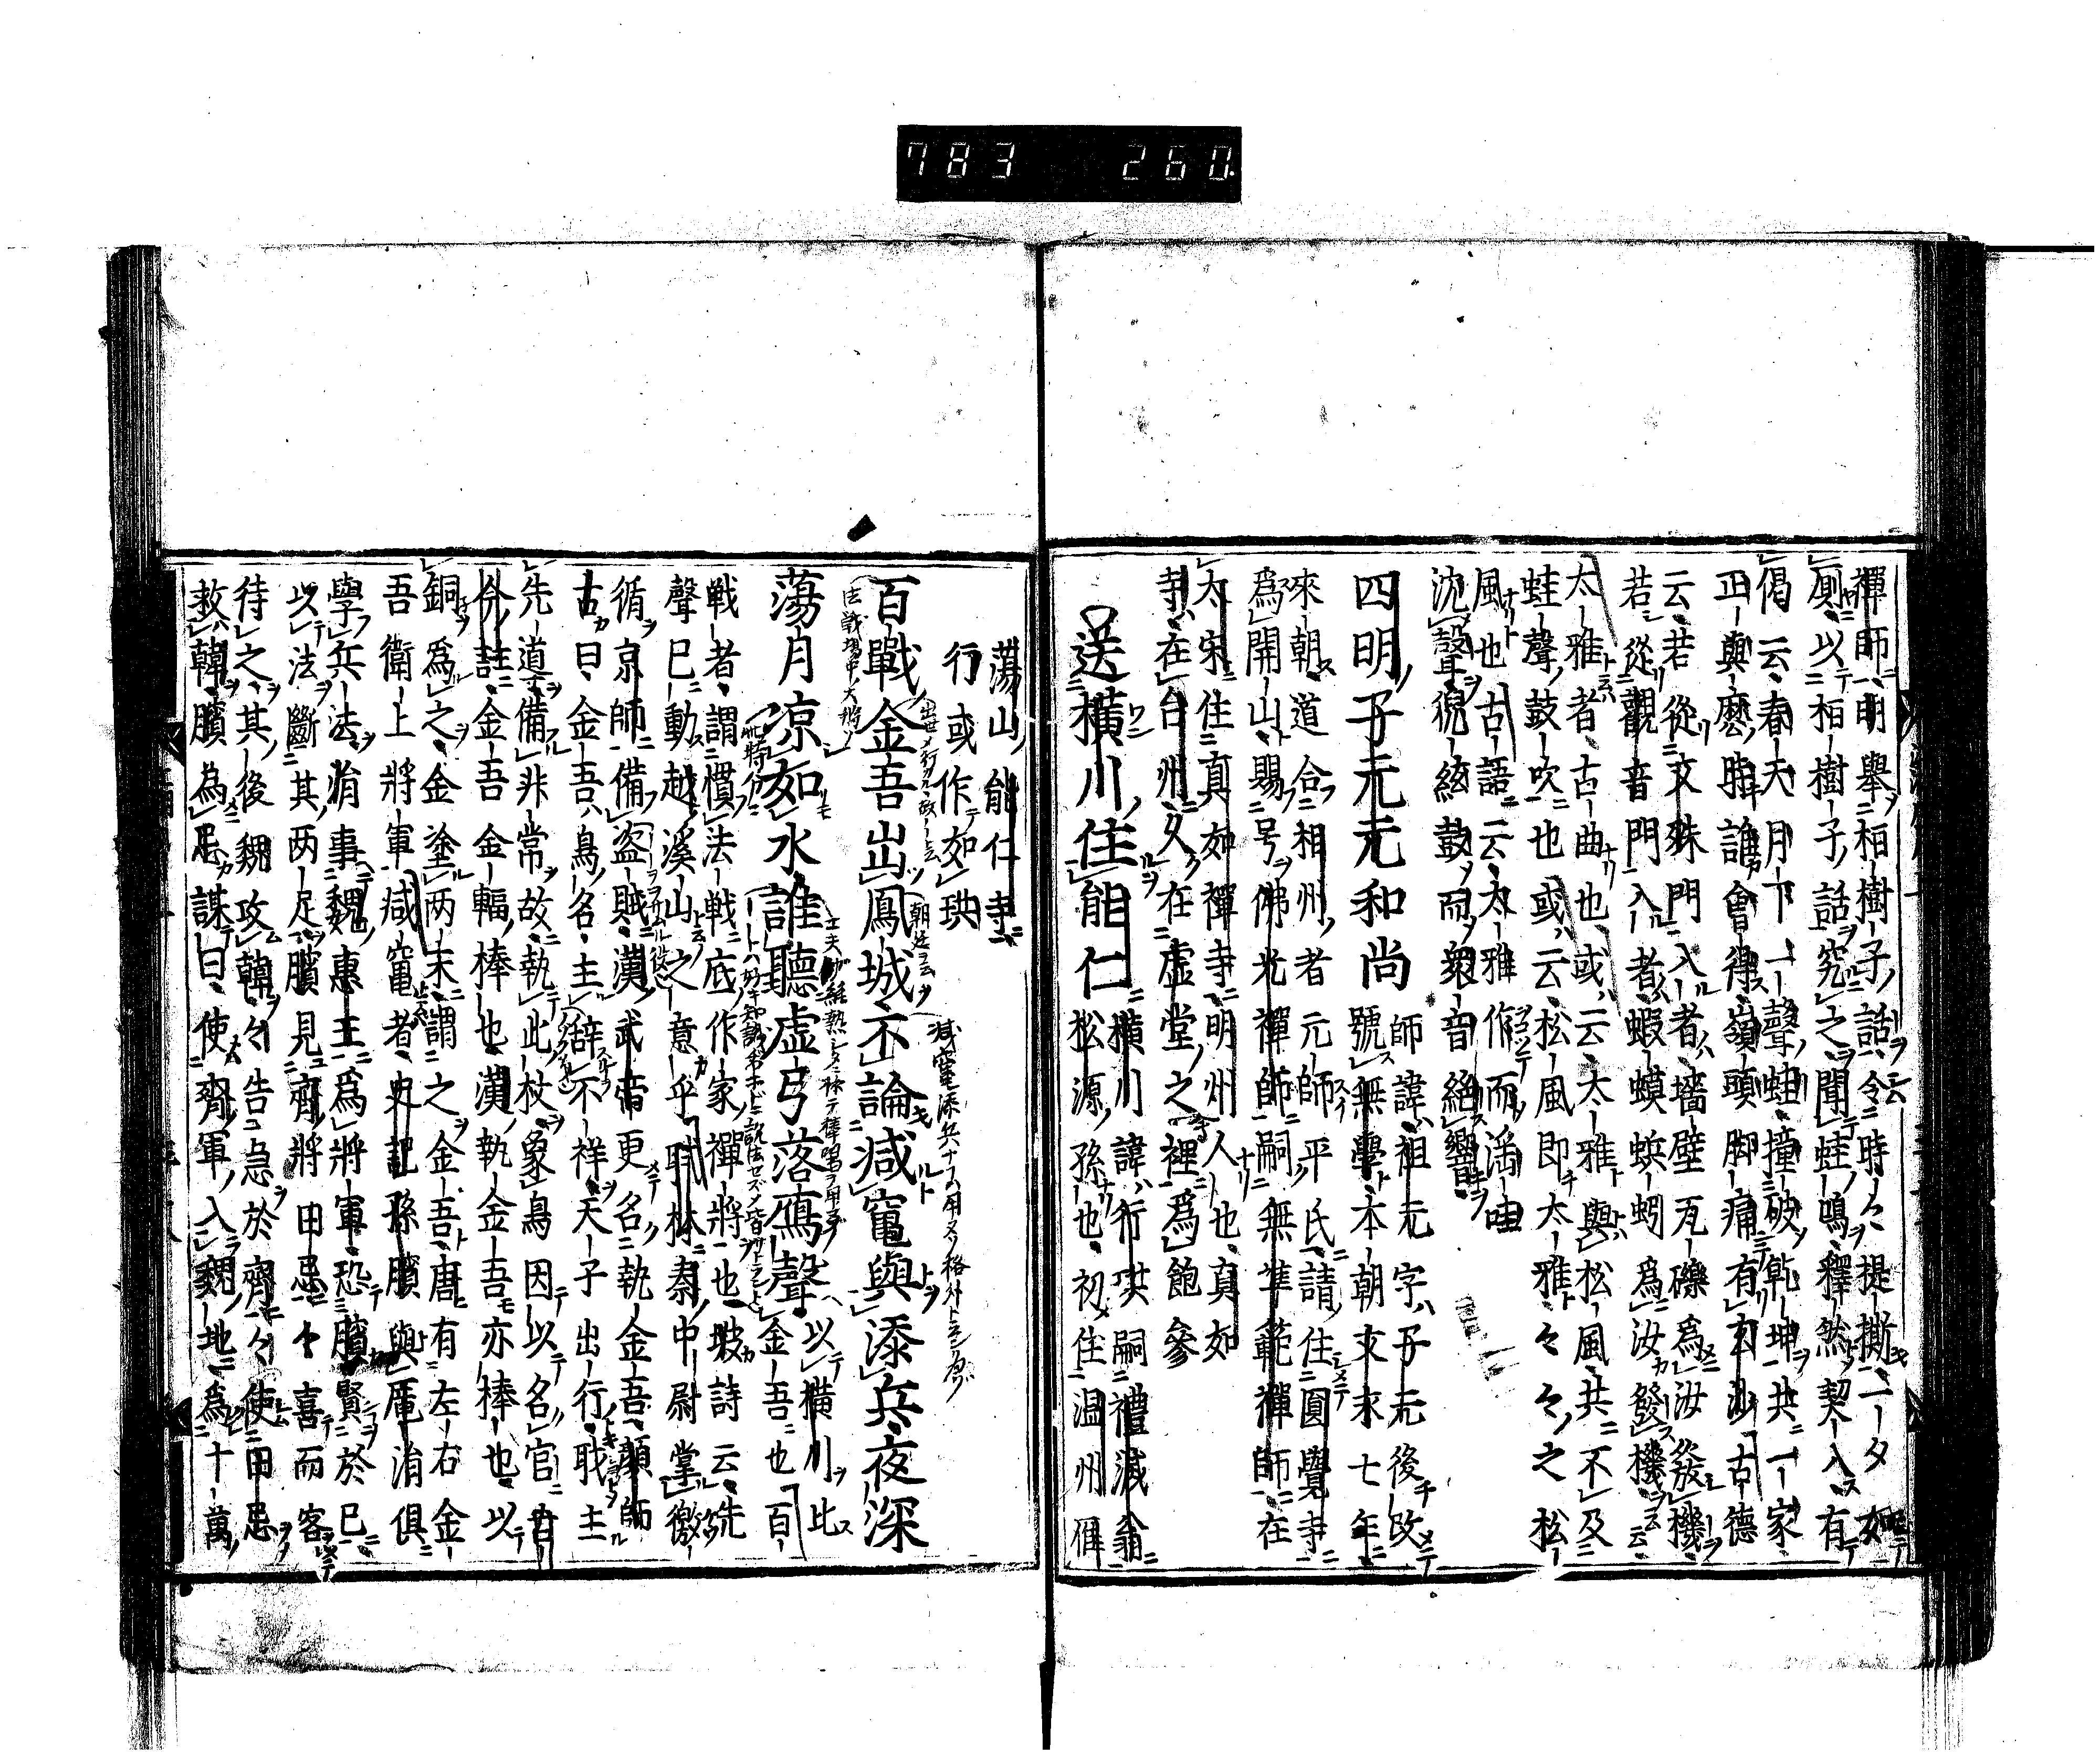 783 260
禪師明舉柏樹子話令時々提撕一夕如
厠以柏樹子話究之聞蛙鳴釋然契入有
偈云春天月下一聲蛙撞破乾坤共一家
正與麼時誰會得嶺頭脚痛有玄沙古德
云若從文殊門入者墻壁瓦礫爲汝發機
若從觀音門入者蝦蟆蚯蚓爲汝發機
太雅者古曲也或云太雅與松風共不及
蛙聲鼓吹也或云松風即太雅々々之松
風也古語云太雅作而滛哇
沈聲猊絃鼓而衆音絶響
四明子元元和尚
師諱祖元字子元後改
號無學本朝文末七年
來朝道合相州者元師平氏請住圓覺寺
爲開山賜号佛光禪師嗣無準範禪師在
太宋住真如禪寺明州人也真如
寺在台州久在虚堂之裡爲飽參
送横川住能仁
横川諱行珙嗣禮滅翁
松源孫也初住温州雁
蕩山能仁寺
行或作如珙
百戰金吾出鳳城不論减竈與添兵夜深
蕩月凉如水誰聽虚弓落鴈聲
以横川比
金吾也百
戰者謂慣法戰底作家禪將也坡詩云先
聲已動越溪山之意乎職林秦中尉掌徼
循京師備盗賊漢武帝更名執金吾顔師
古曰金吾鳥名主辟不祥天子出行職主
先道備非常故執此杖象鳥因以名官古
今註金吾金輻棒也漢執金吾亦棒也以
銅爲之金塗两末謂之金吾唐有左右金
吾衛上將軍减竈者史記孫臏與龐涓俱
學兵法涓事魏惠王爲將軍恐臏賢於已
以法斷其两足臏見齊將田忌々喜而客
待之其後魏攻韓々告急於齊々使田忌
救韓臏為忌謀曰使齊軍入魏地為十萬